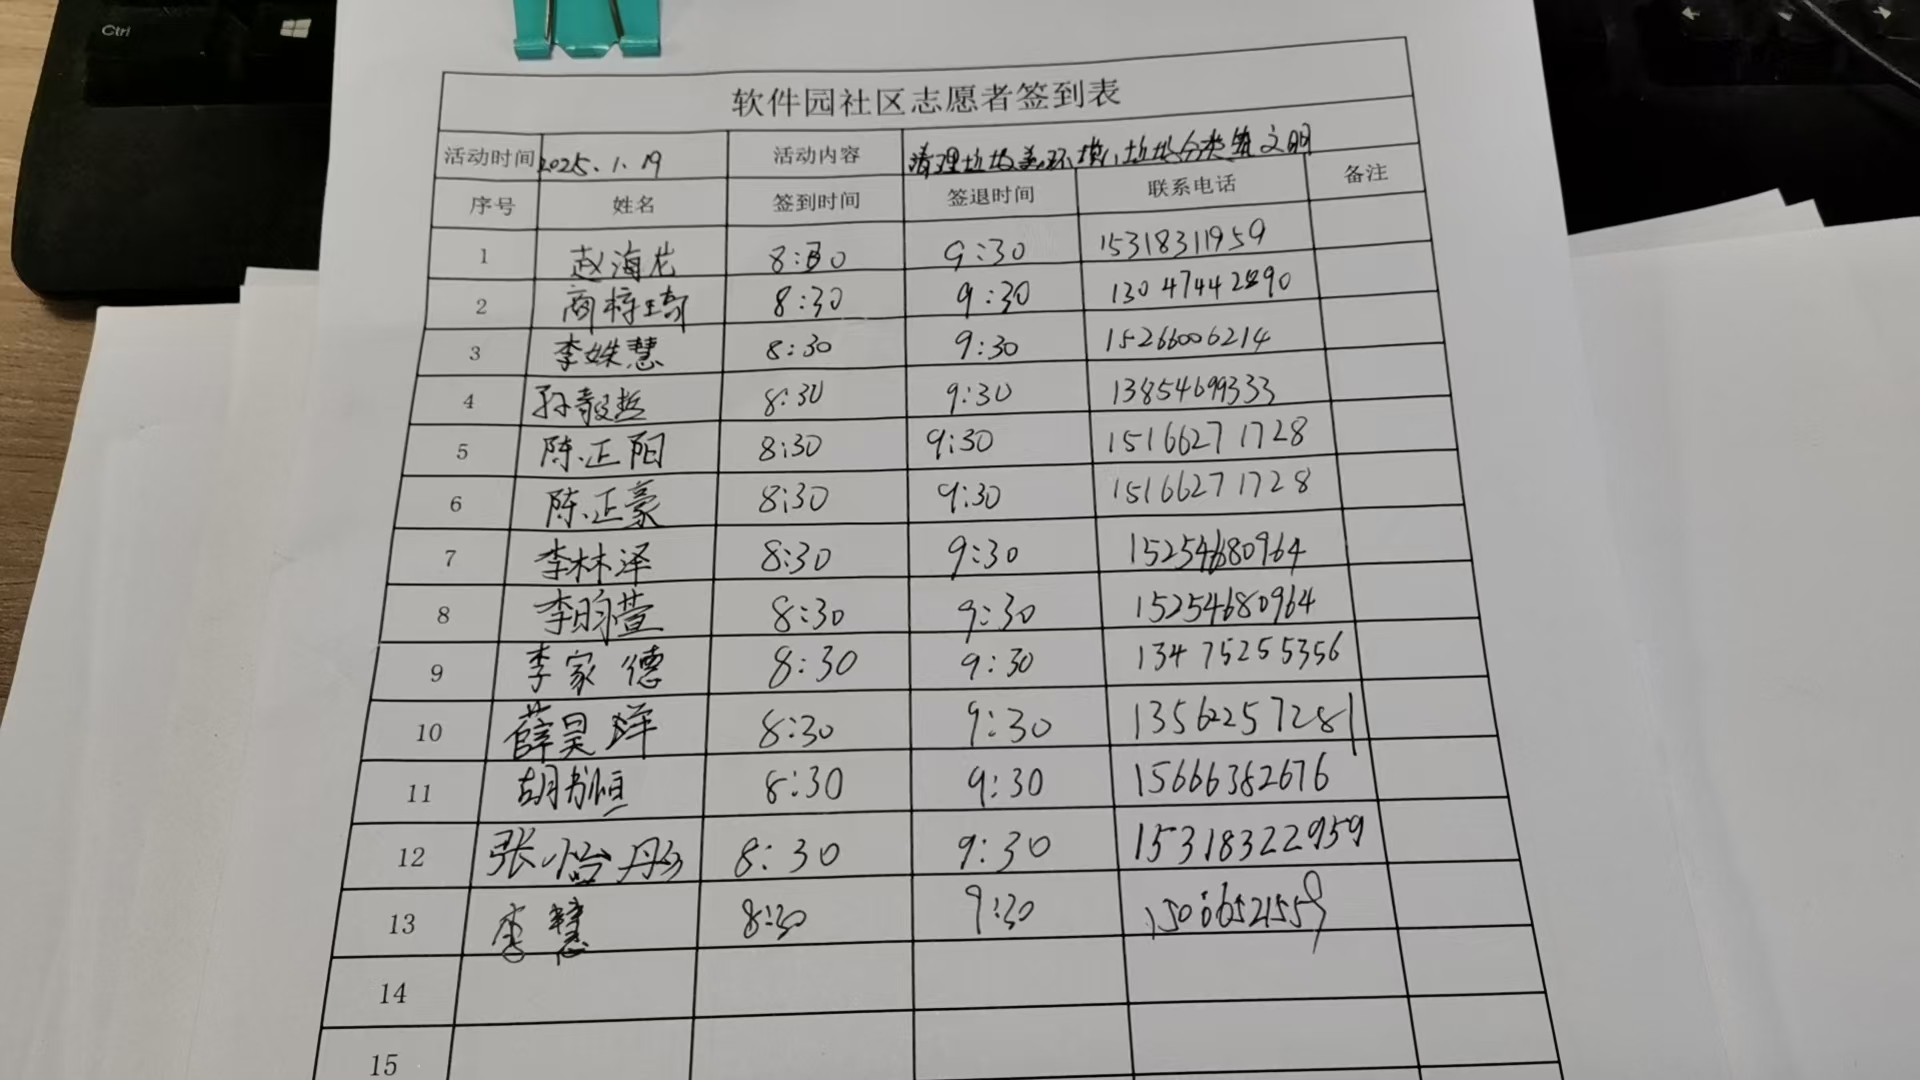 Ctrl
软件园社区志愿者签到表
活动时间 2025.1.19 活动内容 清理垃圾美环境,垃圾分类筑文明
序号 姓名 签到时间 签退时间 联系电话 备注
1 赵海龙 8:30 9:30 15318311959
2 商梓琦 8:30 9:30 13047442290
3 李姝慧 8:30 9:30 15266006214
4 孙毅哲 8:30 9:30 13854699333
5 陈正阳 8:30 9:30 15166271728
6 陈正豪 8:30 9:30 15166271728
7 李林泽 8:30 9:30 15254680964
8 李昀萱 8:30 9:30 15254680964
9 李家德 8:30 9:30 13475255356
10 薛昊洋 8:30 9:30 13562257281
11 胡书恒 8:30 9:30 15666382676
12 张怡彤 8:30 9:30 15318322959
13 李慧 8:30 9:30 15066521559
14
15